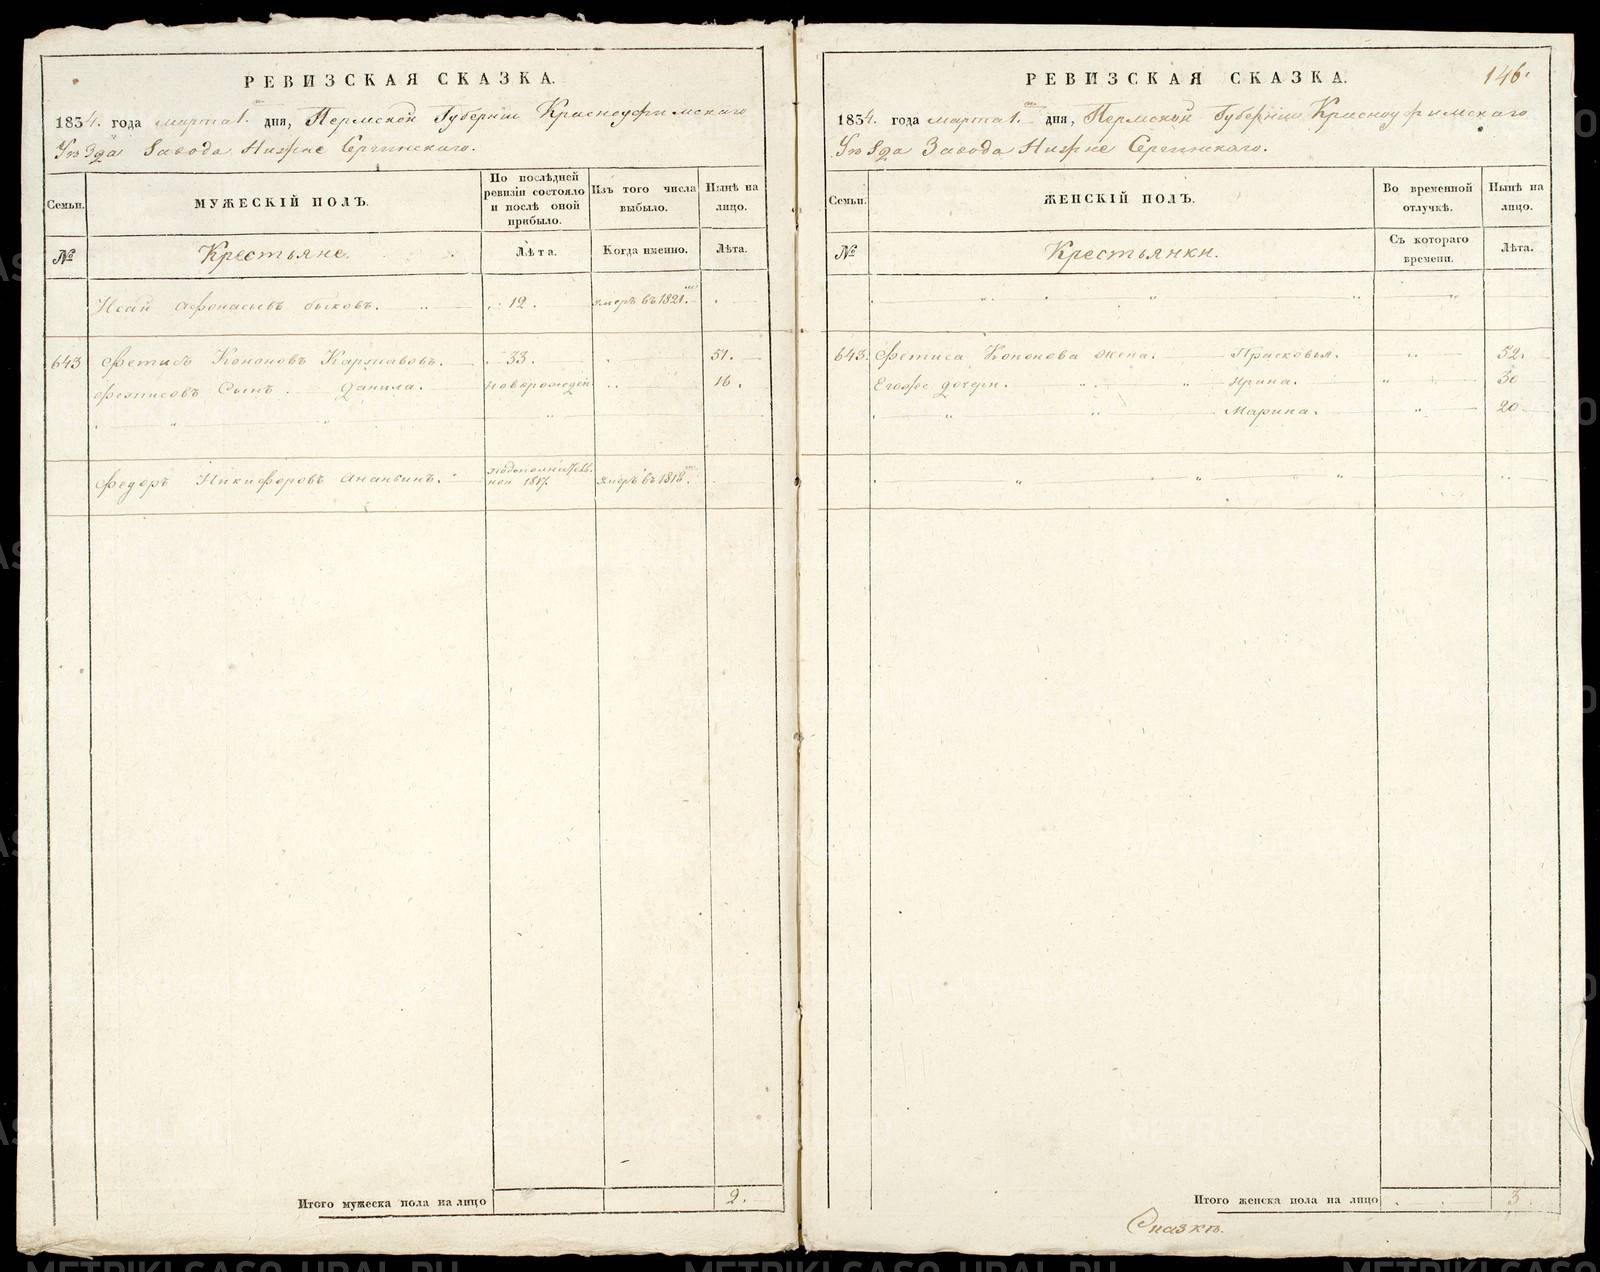 РЕВИЗСКАЯ СКАЗКА.
1834. года марта 1. дня, Пермской Губернии Красноуфимскаго
Уѣзда Завода Нижне Сергинскаго.
Семьи.
МУЖЕСКІЙ ПОЛЪ.
По послѣдней ревизіи состояло и послѣ оной прибыло.
Изъ того числа выбыло.
Нынѣ на лицо.
№
Крестьяне.
Лѣта.
Когда именно.
Лѣта.
Исай Афонасьевъ Быковъ. 12. умеръ въ 1821.
643 Фетисъ Кононовъ 33. 51.
Фетисовъ Сынъ Данила. новорожден. 16.
Федоръ Никифоровъ Ананьинъ. 1817. умеръ въ 1818.
Итого мужеска пола на лицо 2.
146.
РЕВИЗСКАЯ СКАЗКА.
1834. года марта 1. дня, Пермской Губернии Красноуфимскаго
Уѣзда Завода Нижне Сергинскаго.
Семьи.
ЖЕНСКІЙ ПОЛЪ.
Во временной отлучкѣ.
Нынѣ на лицо.
№
Крестьянки.
Съ котораго времени.
Лѣта.
643. Фетиса Кононова жена. Прасковья. 52.
Егоже дочери. Ирина. 30
Марина. 20
Итого женска пола на лицо 3